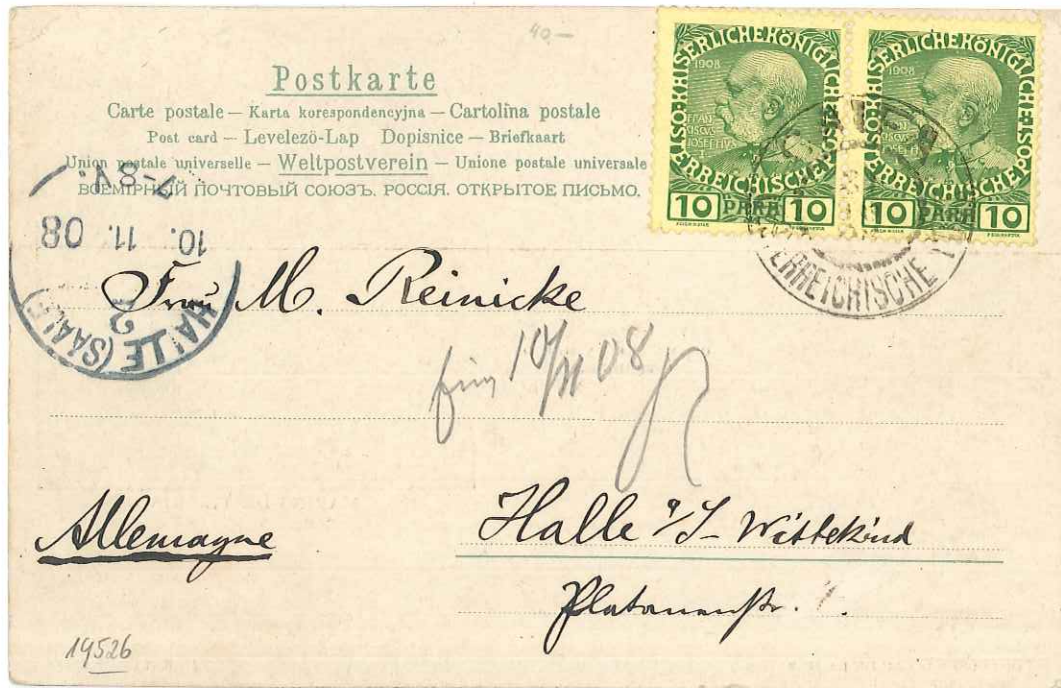 40.—
Postkarte
Carte postale — Karta korespondencyjna — Cartolina postale
Post card — Levelező-Lap Dopisnice — Briefkaart
Union postale universelle — Weltpostverein — Unione postale universale
ВСЕМІРНЫЙ ПОЧТОВЫЙ СОЮЗЪ. РОССІЯ. ОТКРЫТОЕ ПИСЬМО.
KAISERLICHE KÖNIGLICHE ÖSTERREICHISCHE POST
1908
FRANCISCUS JOSEFHUS
10 PARA 10
KAISERLICHE KÖNIGLICHE ÖSTERREICHISCHE POST
1908
FRANCISCUS JOSEFHUS
10 PARA 10
ÖSTERREICHISCHE
7-8V.
10. 11. 08
HALLE (SAALE)
2
Frau M. Reinicke
10/11 08
Allemagne
Halle a/S- Wittekind
Platanenstr. 4.
19526